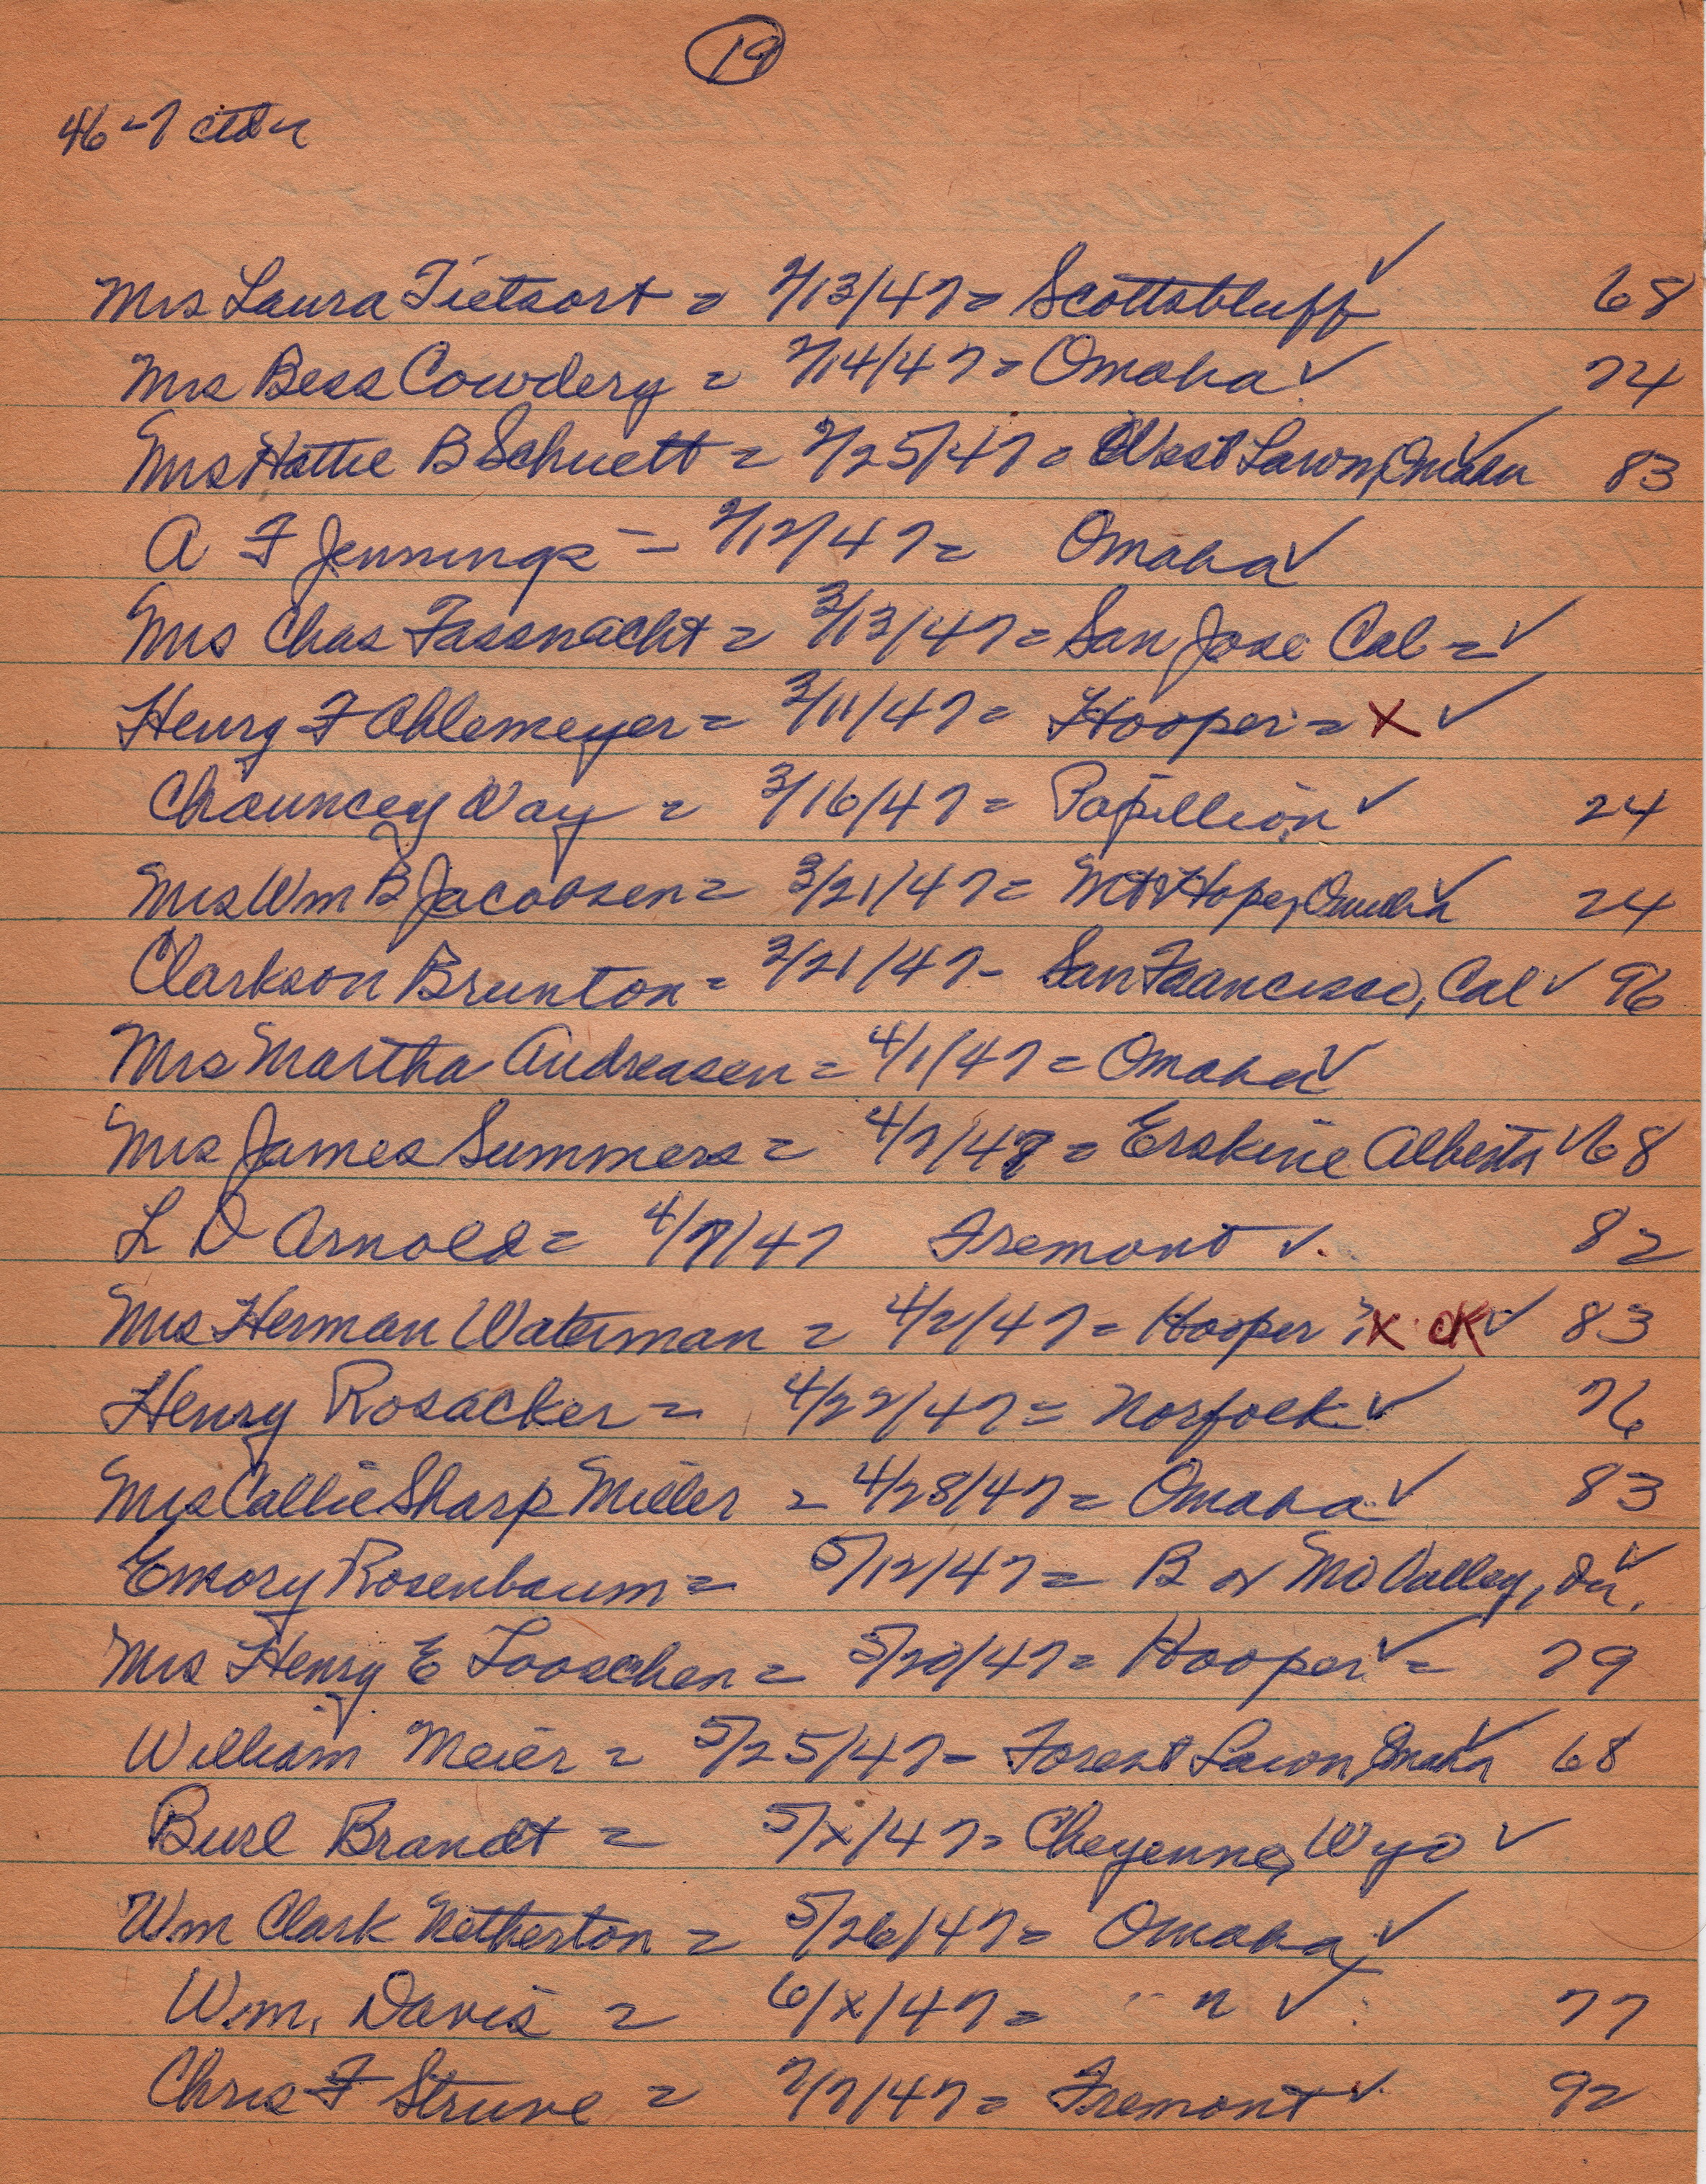 19
46-7 ctd
Mrs Laura Tietsort = 2/13/47 = Scottsbluff ✓ 68
Mrs Bess Cowdery = 2/14/47 = Omaha ✓ 74
Mrs Hattie B Schuett = 2/25/47 = West Lawn, Omaha ✓ 83
A F Jennings = 2/12/47 = Omaha ✓
Mrs Chas Fassnacht = 3/13/47 = San Jose Cal = ✓
Henry F Ahlemeyer = 3/11/47 = Hooper = X ✓
Chauncey Way = 3/16/47 = Papillion ✓ 24
Mrs Wm B Jacobsen = 3/21/47 = Mt Hope, Omaha ✓ 24
Clarkson Brunton = 3/21/47 - San Francisco, Cal ✓ 96
Mrs Martha Andreasen = 4/1/47 = Omaha ✓
Mrs James Summers = 4/7/47 = Erskine Alberta ✓ 68
L D Arnold = 4/7/47 Fremont ✓ 82
Mrs Herman Waterman = 4/2/47 = Hooper X OK ✓ 83
Henry Rosacker = 4/22/47 = Norfolk ✓ 76
Mrs Callie Sharp Miller = 4/28/47 = Omaha ✓ 83
Emory Rosenbaum = 5/12/47 = B of Mo Valley, ✓
Mrs Henry E Looschen = 5/20/47 = Hooper ✓ = 79
William Meier = 5/25/47 - Forest Lawn, Omaha ✓ 68
Burl Brandt = 5/x/47 = Cheyenne, Wyo ✓
Wm Clark Netherton = 5/26/47 = Omaha ✓
Wm. Davis = 6/x/47 = " ✓ 77
Chris F Struve = 7/7/47 = Fremont ✓ 92